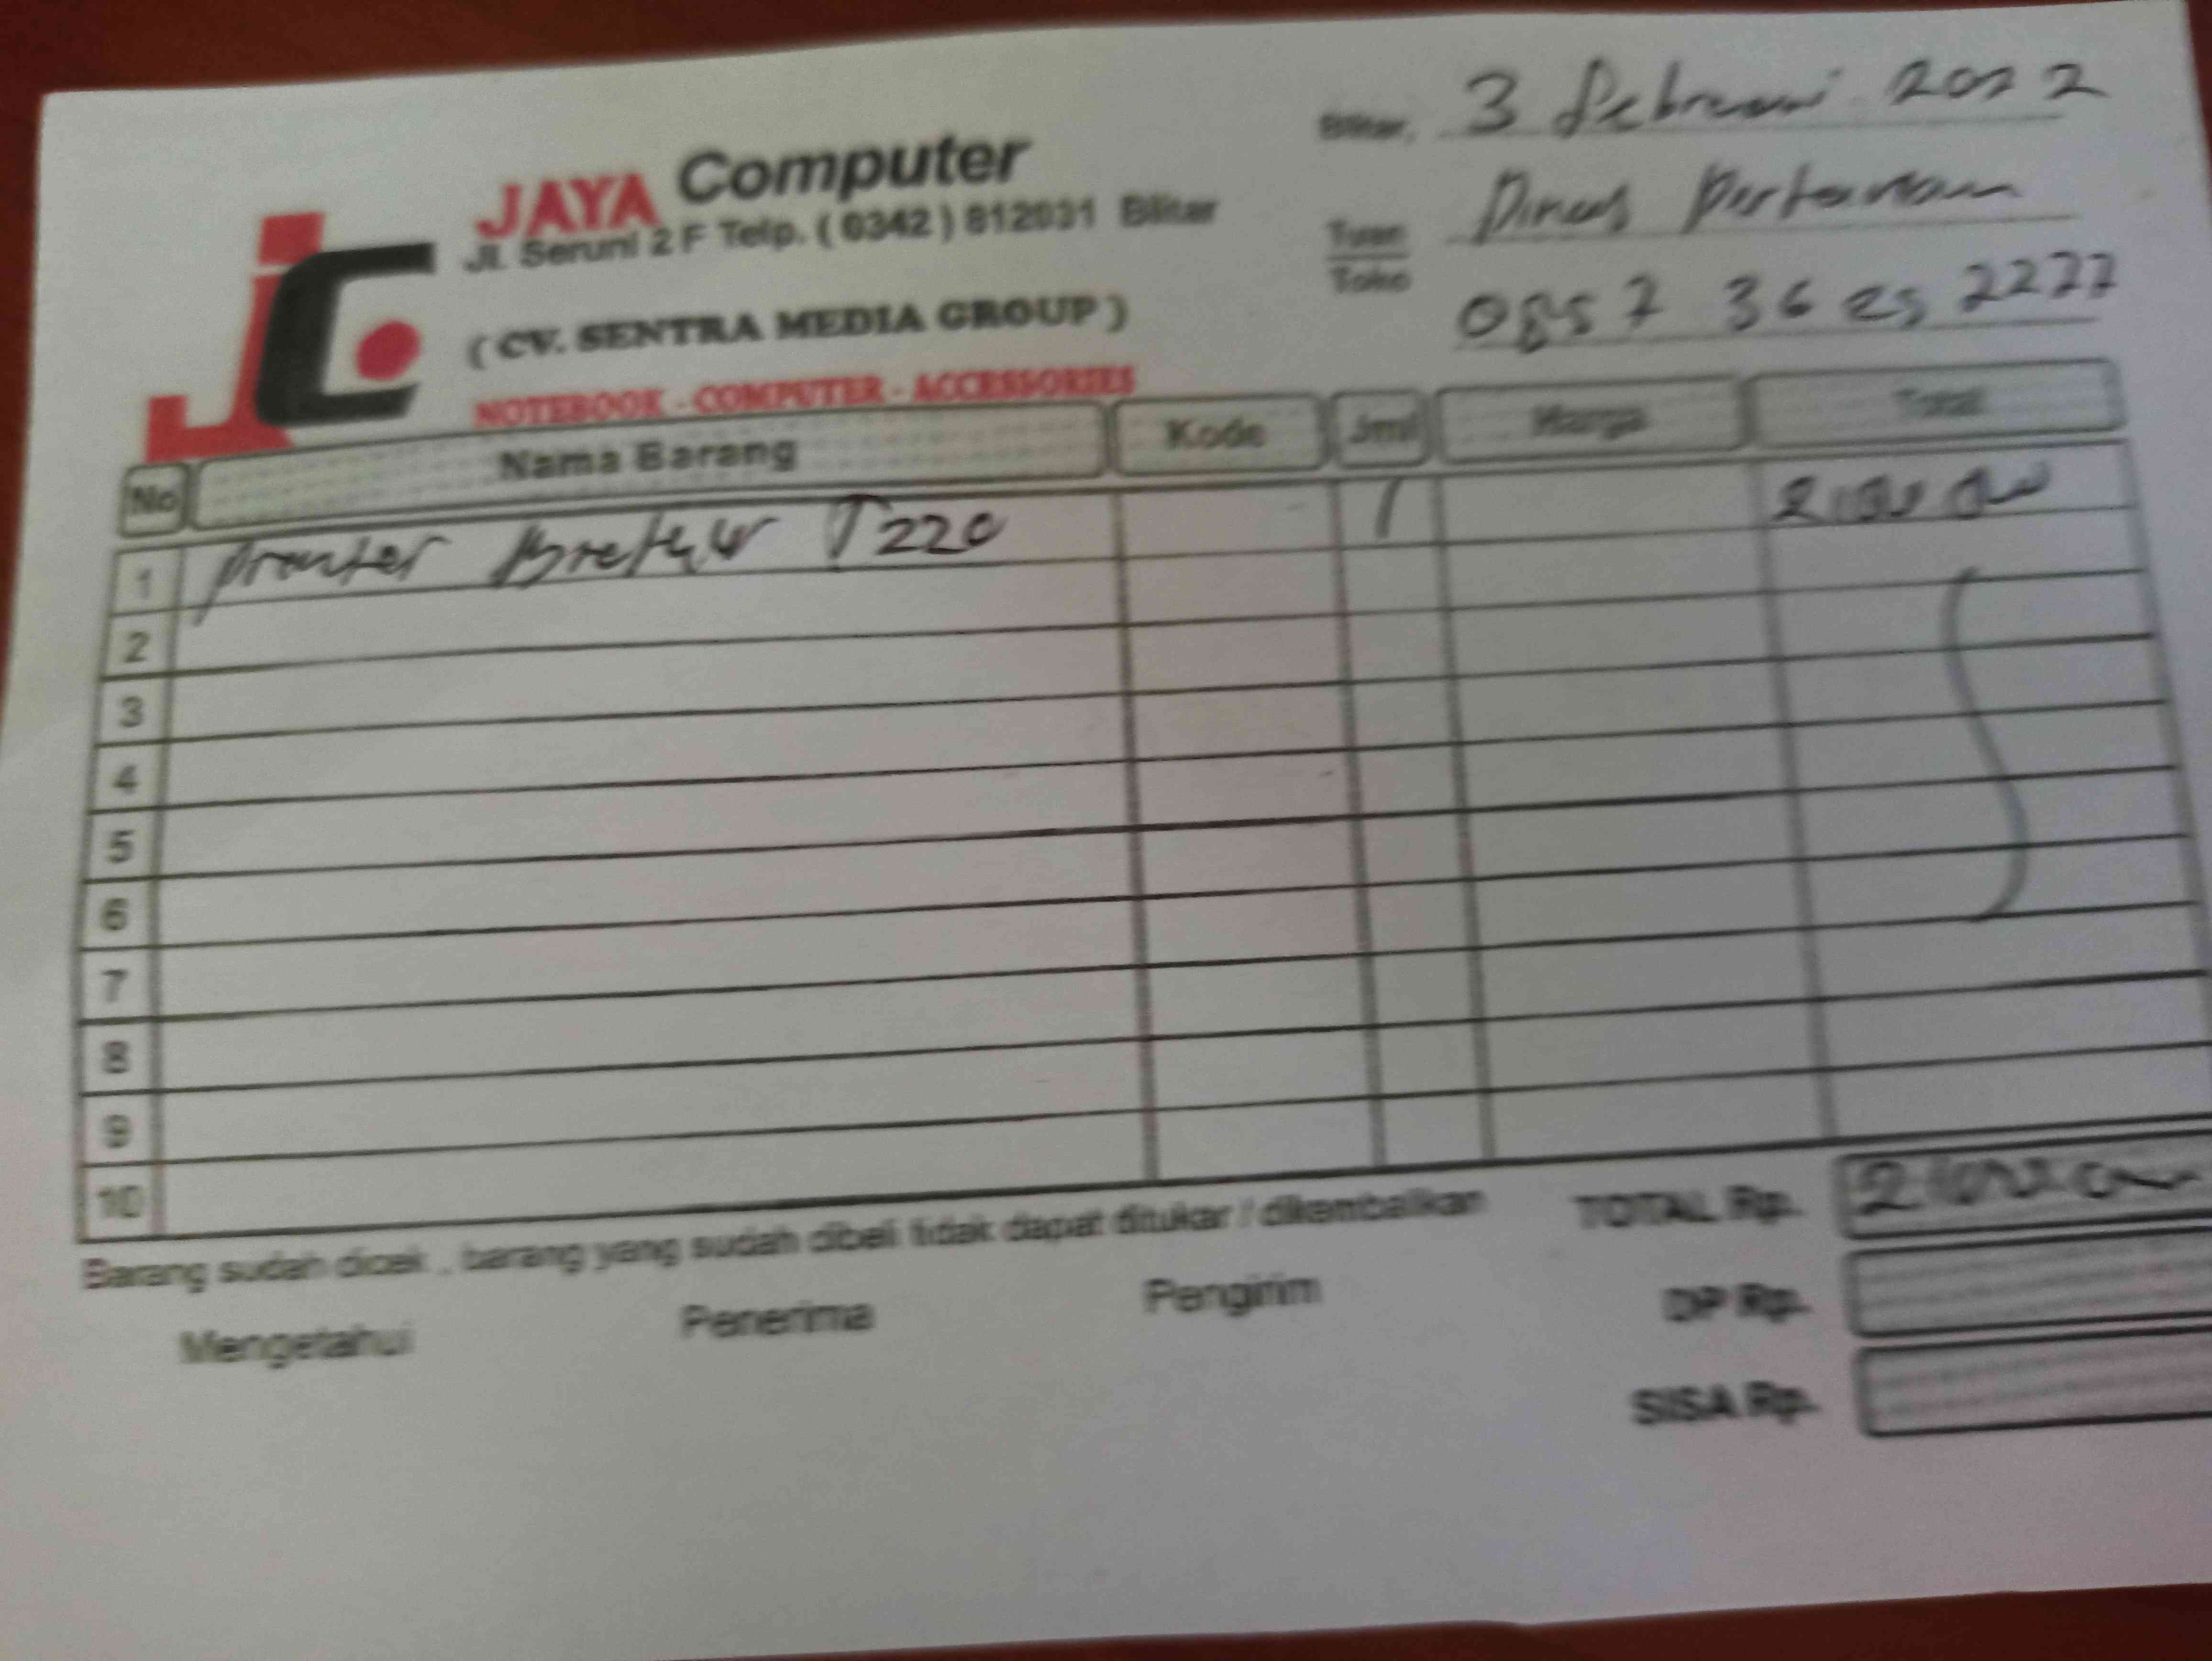 JAYA Computer
Jl. Seruni 2 F Telp. ( 0342 ) 812031 Blitar
( CV. SENTRA MEDIA GROUP )
NOTEBOOK - COMPUTER - ACCESSORIES
Blitar, 3 Februari 2022
Tuan
Toko
Dinas Pertanian
0857 36 25 2277
No Nama Barang Kode Jml Harga Total
1 Brother T220 1
2
3
4
5
6
7
8
9
10
Barang sudah dicek , barang yang sudah dibeli tidak dapat ditukar / dikembalikan
TOTAL Rp.
Mengetahui Penerima Pengirim
DP Rp.
SISA Rp.